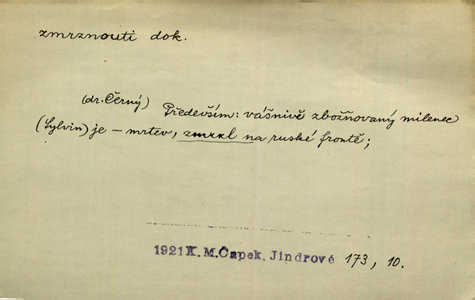 zmrznouti dok.
(dr. Černý) Především: vášnivě zbožňovaný milenec
(Sylvin) je – mrtev, zmrzl na ruské frontě;
1921 K. M. Čapek, Jindrové 173, 10.